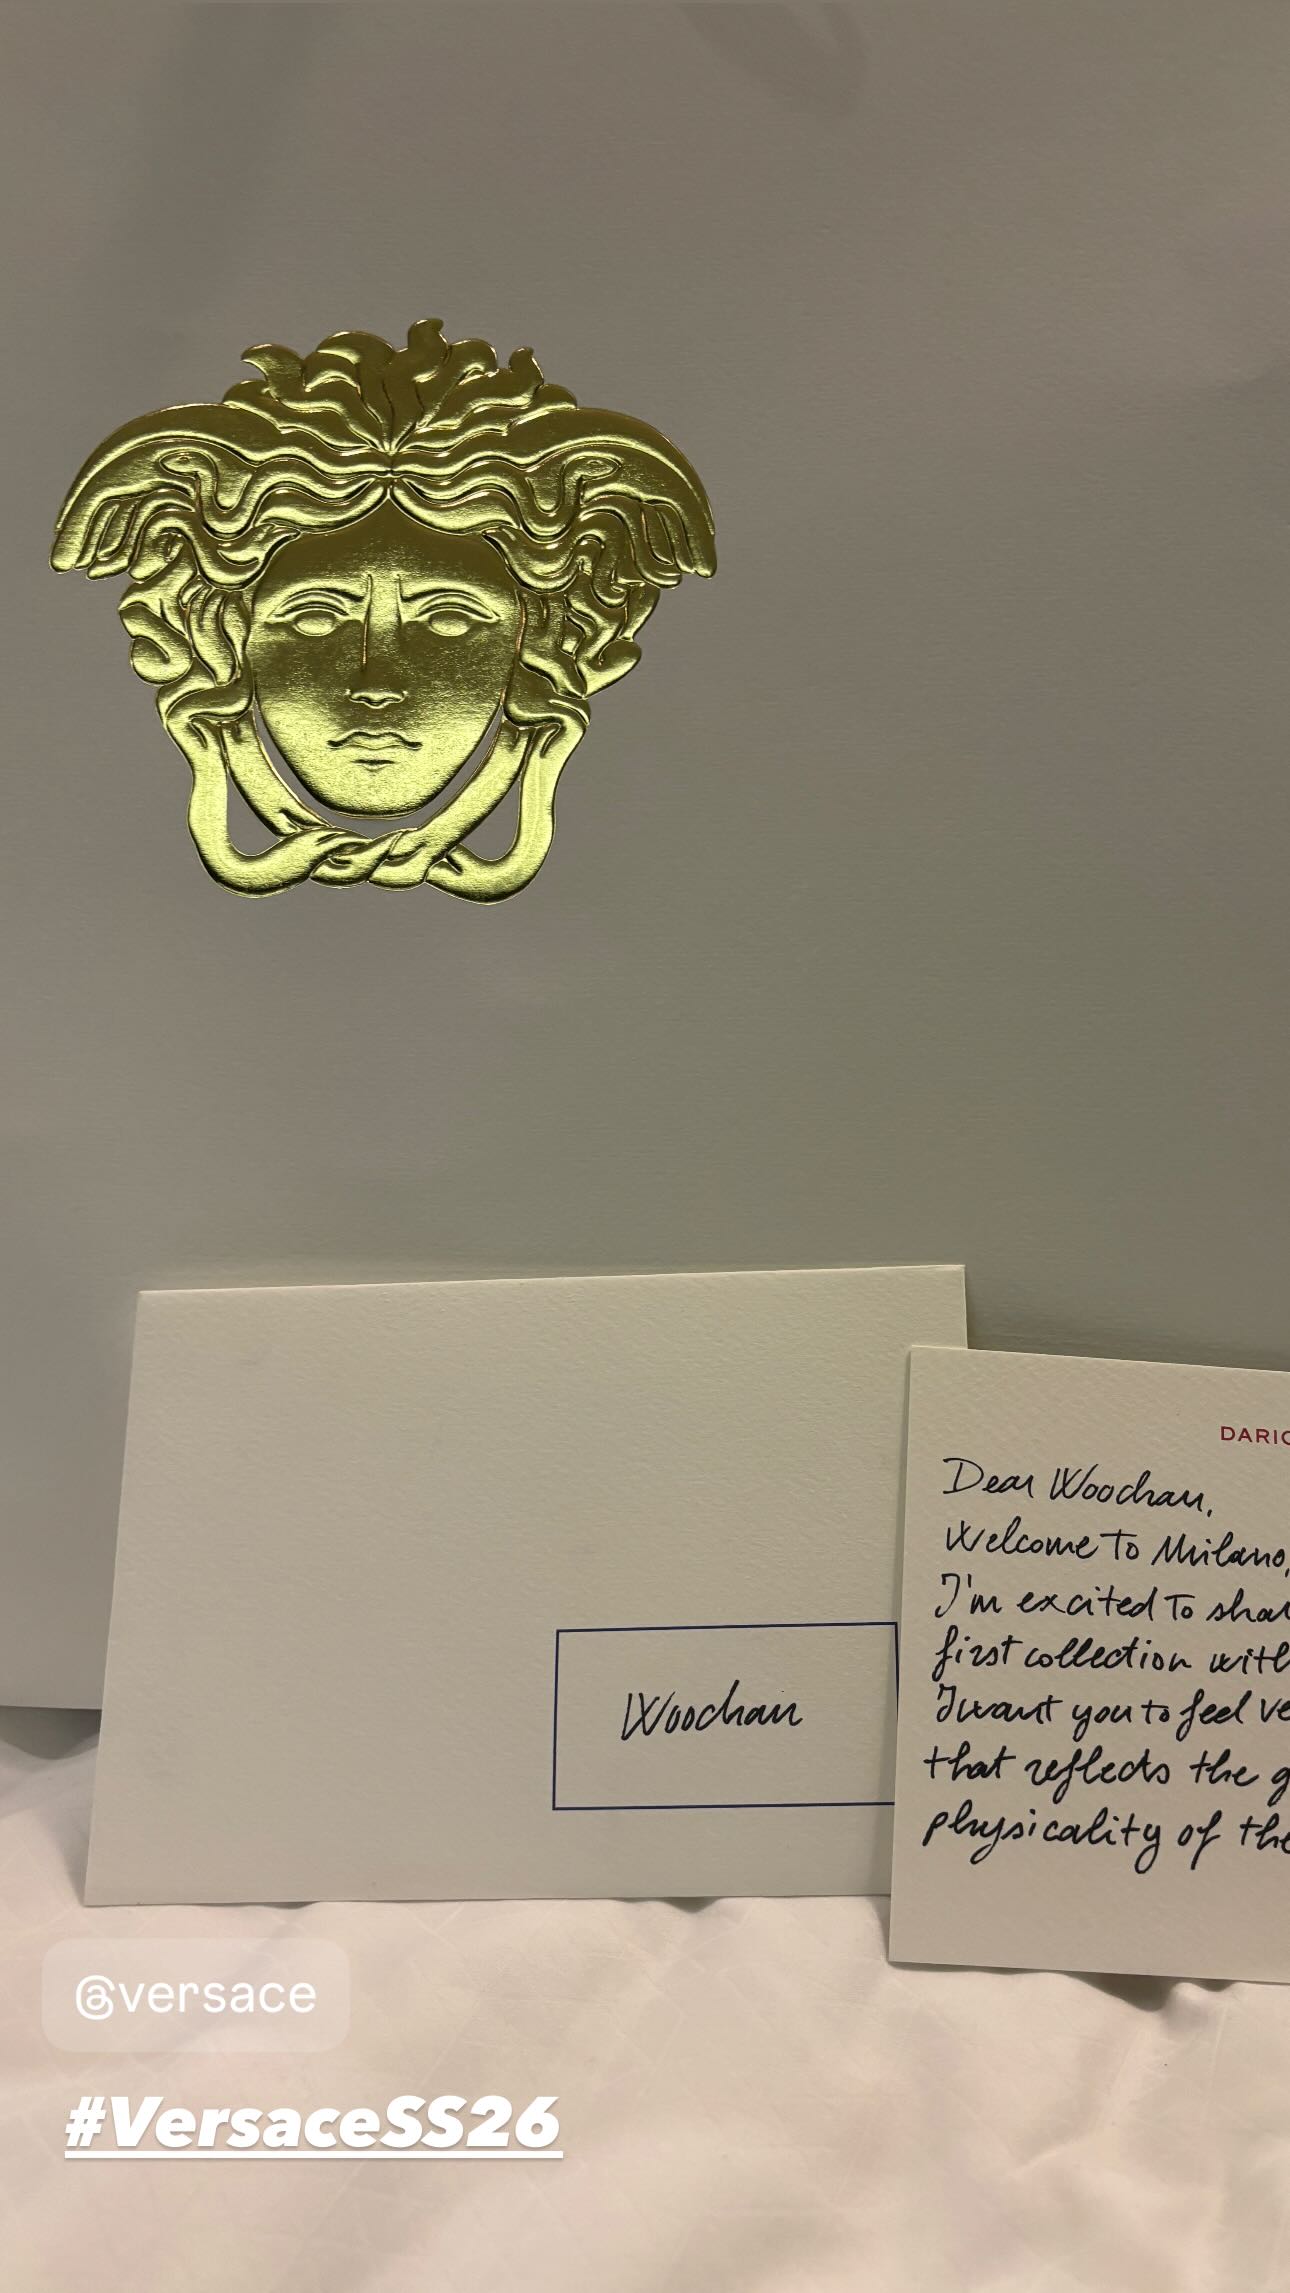 Woochan
DARIO
Dear Woochan,
Welcome To Milano,
I'm excited To shar
first collection with
I want you to feel ve
that reflects the g
physicality of the
@versace
#VersaceSS26